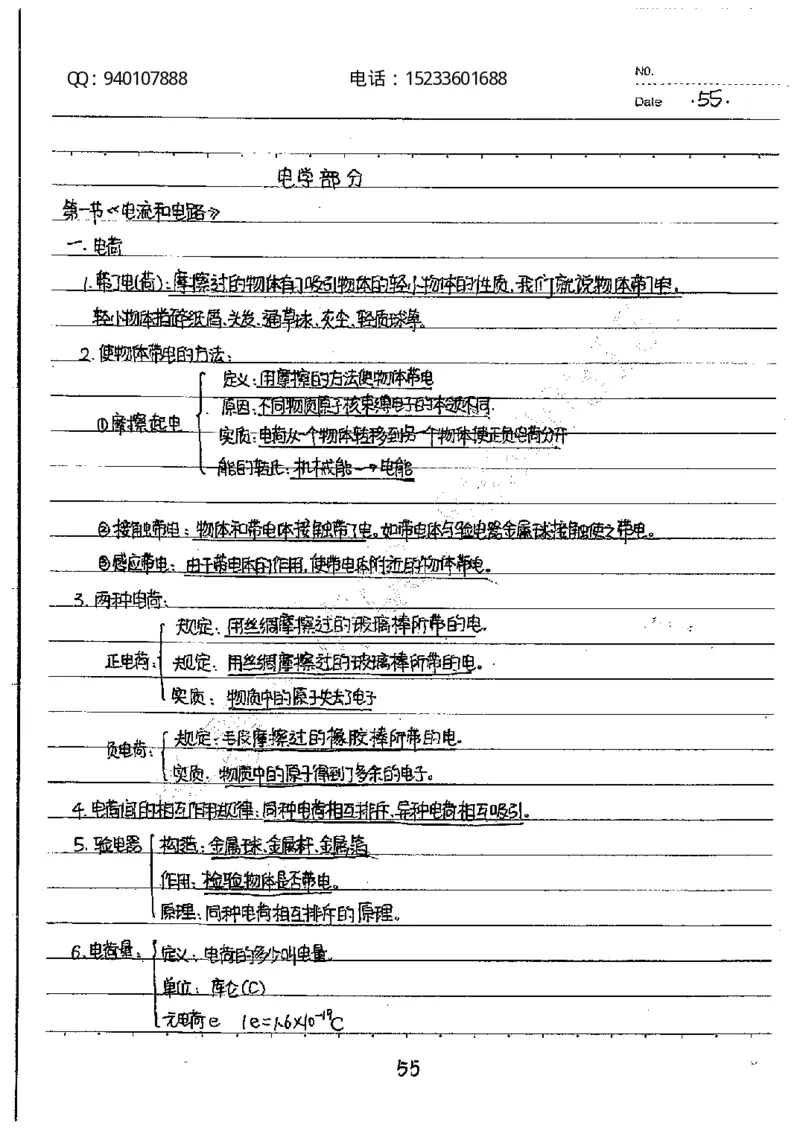 QQ：940107888 电话：15233601688 NO.
Date ·55·
电学部分
第一节《电流和电路》
一.电荷
1.带了电(荷)：摩擦过的物体有了吸引物体的轻小物体的性质，我们就说物体带了电。
轻小物体指碎纸屑、头发、通草球、灰尘、轻质球等。
2.使物体带电的方法：
定义：用摩擦的方法使物体带电
原因：不同物质原子核束缚电子的本领不同.
①摩擦起电
实质：电荷从一个物体转移到另一个物体使正负电荷分开
能的转化：机械能→电能
②接触带电：物体和带电体接触带了电。如带电体与验电器金属球接触使之带电。
③感应带电：由于带电体的作用，使带电体附近的物体带电。
3.两种电荷：
规定：用丝绸摩擦过的玻璃棒所带的电.
正电荷：规定：用丝绸摩擦过的玻璃棒所带的电.
实质：物质中的原子失去了电子
规定：毛皮摩擦过的橡胶棒所带的电.
负电荷：
实质：物质中的原子得到了多余的电子。
4.电荷间的相互作用规律：同种电荷相互排斥，异种电荷相互吸引。
5.验电器 构造：金属球、金属杆、金属箔
作用：检验物体是否带电。
原理：同种电荷相互排斥的原理。
6.电荷量：定义：电荷的多少叫电量.
单位：库仑(C)
元电荷e 1e=1.6×10⁻¹⁹C
55